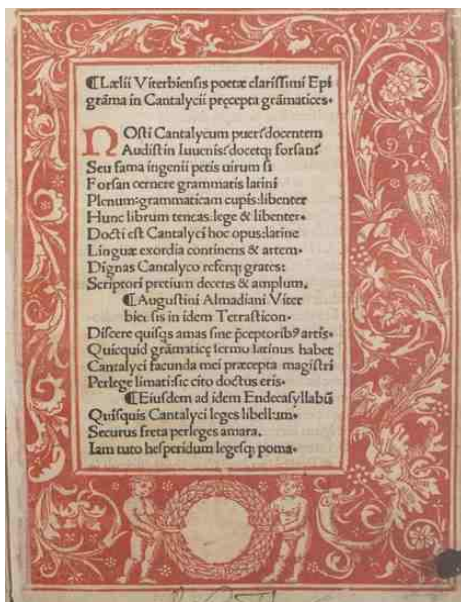 ¶Lælii Viterbiensis poetæ clarissimi Epi
grãma in Cantalycii pręcepta grãmatices.
NOsti Cantalycum pueros docentem
Audistin Iuuenis docetq; forsan?
Seu fama ingenii petis uirum si
Forsan cernere grammatis latini
Plenum: grammaticam cupis: libenter
Hunc librum teneas: lege & libenter.
Docti est Cantalyci hoc opus: latine
Linguæ exordia continens & artem.
Dignas Cantalyco referq; grates:
Scriptori pretium decens & amplum.
¶Augustini Almadiani Viter
bien sis in idem Tetrasticon.
Discere quisq̃s amas sine p̃ceptorib⁹ artis.
Quicquid grãmaticę sermo latinus habet
Cantalyci facunda mei præcepta magistri
Perlege limati: sic cito doctus eris.
¶Eiusdem ad idem Endecasyllabũ
Quisquis Cantalyci leges libellum.
Securus freta perleges amara.
Iam tuto hesperidum legesq; poma.